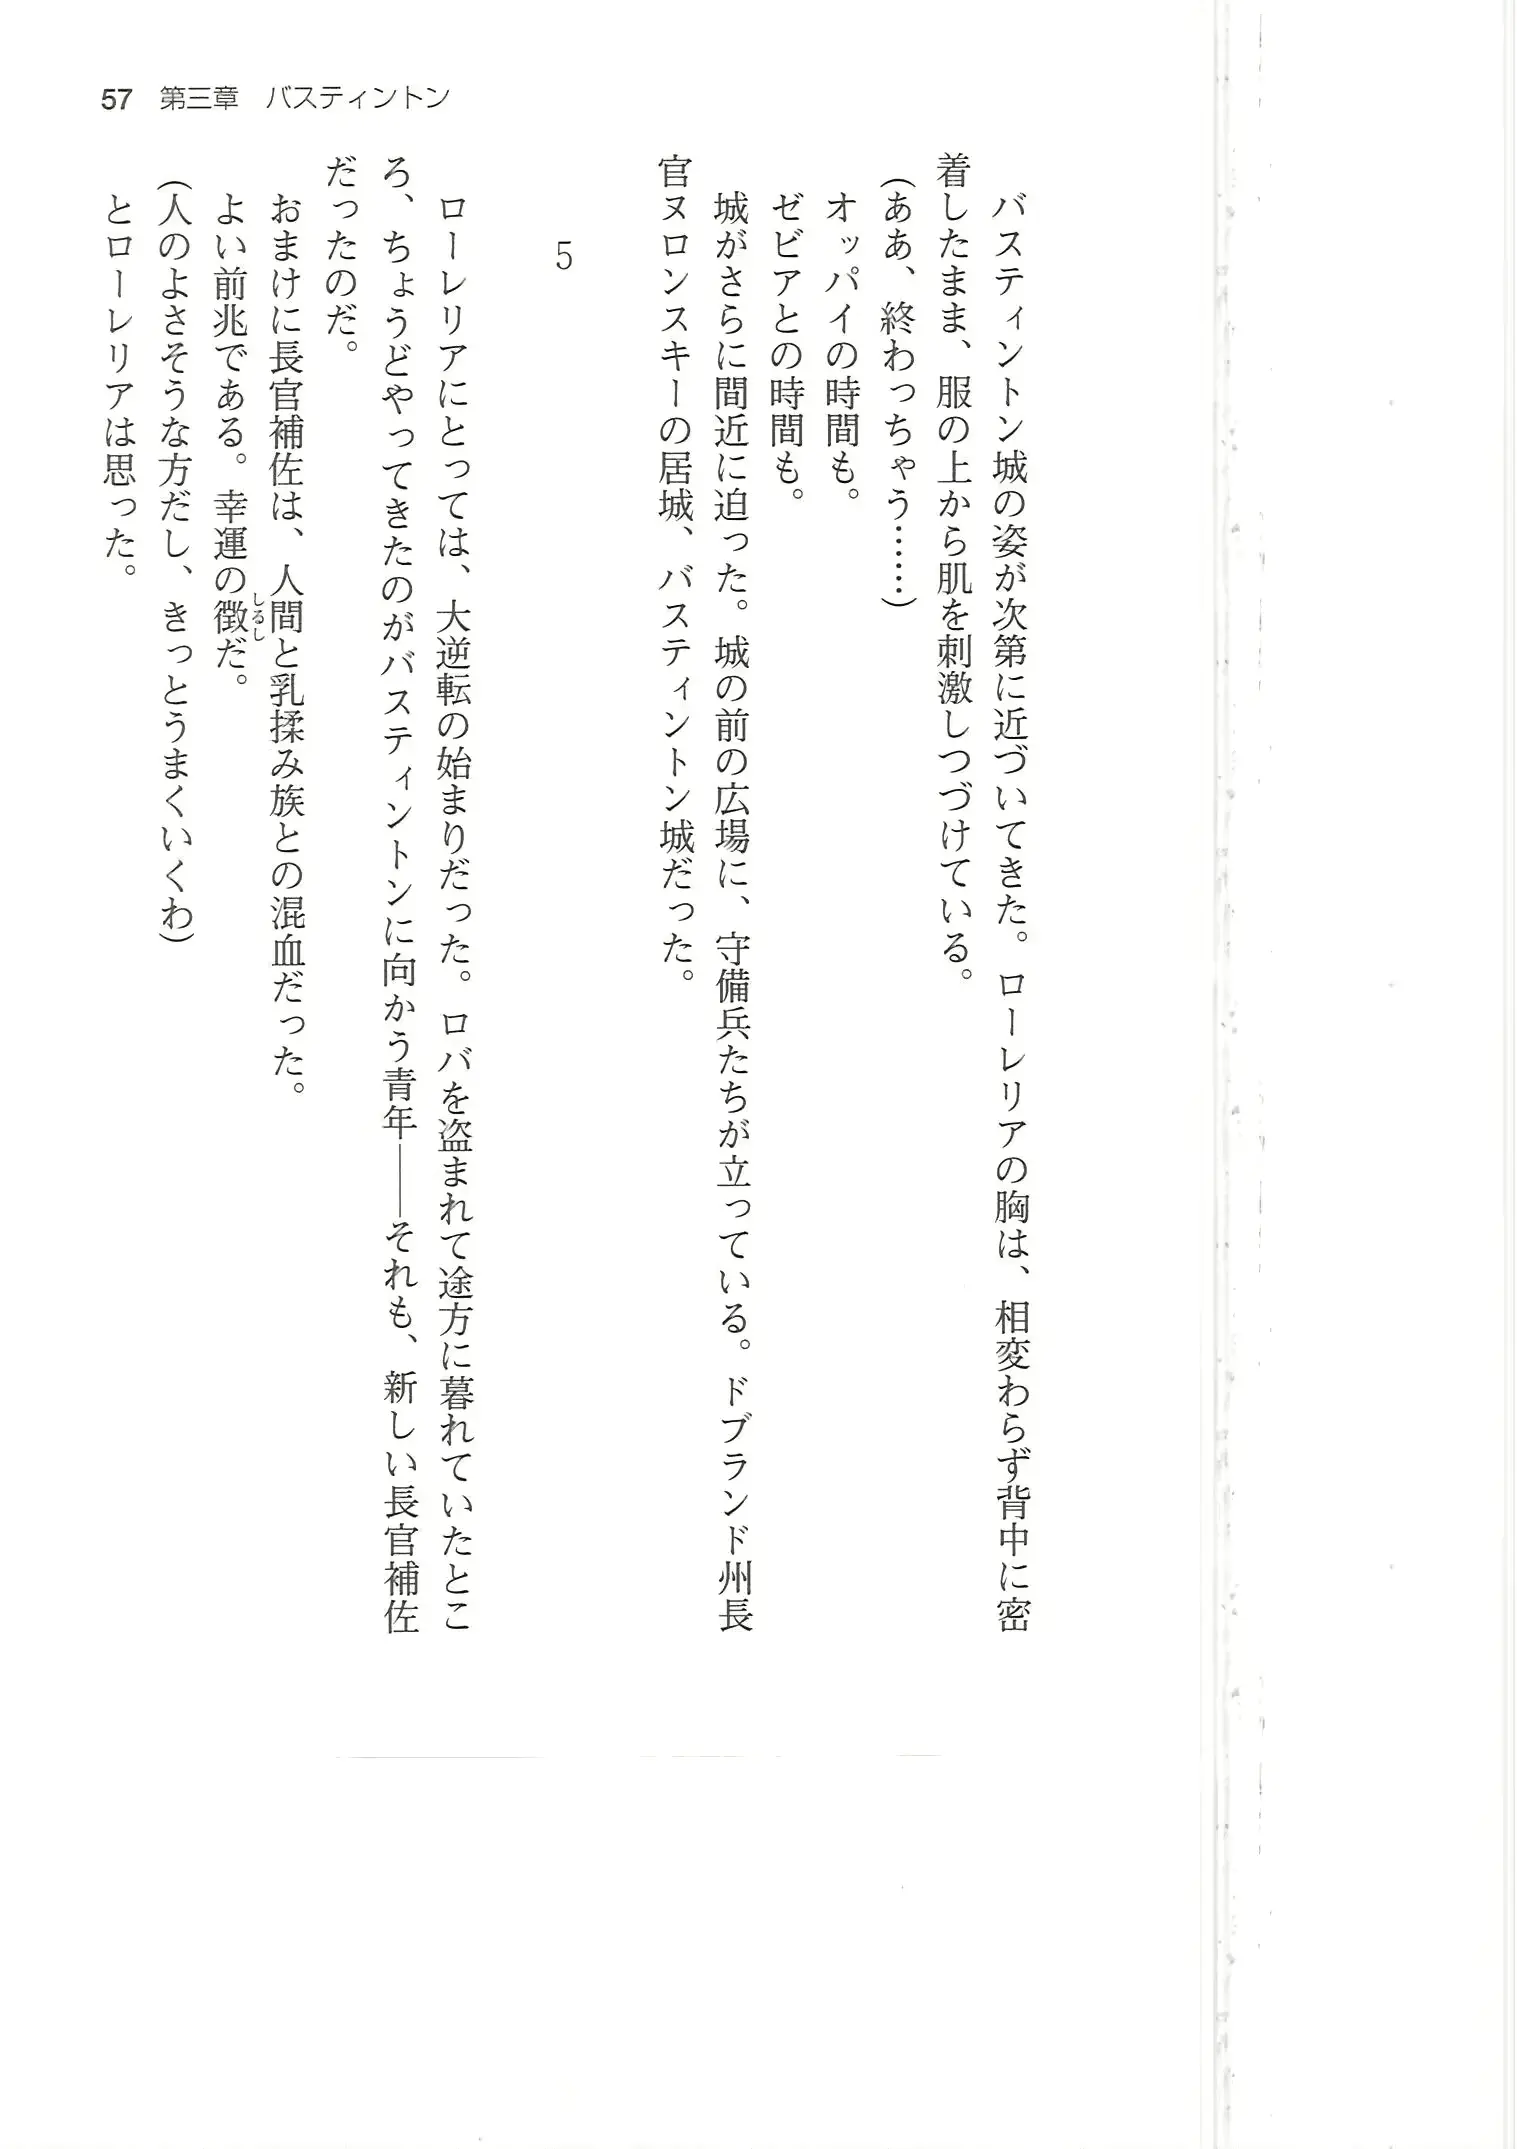 57 第三章 バスティントン
バスティントン城の姿が次第に近づいてきた。ローレリアの胸は、相変わらず背中に密
着したまま、服の上から肌を刺激しつづけている。
(ああ、終わっちゃう……)
オッパイの時間も。
ゼビアとの時間も。
城がさらに間近に迫った。城の前の広場に、守備兵たちが立っている。ドブランド州長
官ヌロンスキーの居城、バスティントン城だった。
5
ローレリアにとっては、大逆転の始まりだった。ロバを盗まれて途方に暮れていたとこ
ろ、ちょうどやってきたのがバスティントンに向かう青年――それも、新しい長官補佐
だったのだ。
おまけに長官補佐は、人間と乳揉み族との混血だった。
よい前兆である。幸運の徴しるしだ。
(人のよさそうな方だし、きっとうまくいくわ)
とローレリアは思った。